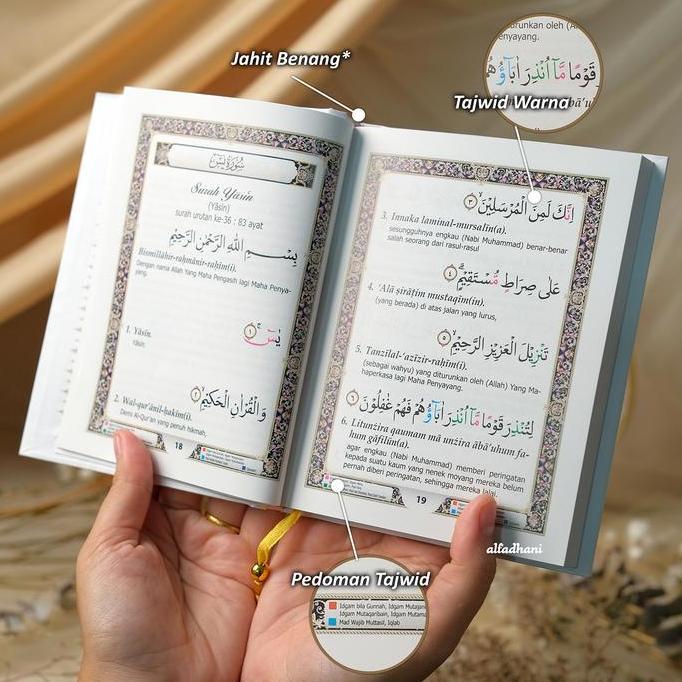 Jahit Benang*
Tajwid Warna
سُوْرَةُ يٰسۤ
Surah Yāsin
(Yāsin)
surah urutan ke-36 : 83 ayat
بِسْمِ اللّٰهِ الرَّحْمٰنِ الرَّحِيْمِ
Bismillāhir-raḥmānir-raḥīm(i).
Dengan nama Allah Yang Maha Pengasih lagi Maha Penya-
yang.
يٰسۤ ۚ ١
1. Yāsīn.
Yāsīn.
وَالْقُرْاٰنِ الْحَكِيْمِۙ ٢
2. Wal-qur'ānil-ḥakīm(i).
Demi Al-Qur'an yang penuh hikmah,
18
اِنَّكَ لَمِنَ الْمُرْسَلِيْنَۙ ٣
3. Innaka laminal-mursalīn(a).
sesungguhnya engkau (Nabi Muhammad) benar-benar
salah seorang dari rasul-rasul
عَلٰى صِرَاطٍ مُّسْتَقِيْمٍۗ ٤
4. 'Alā ṣirāṭim mustaqīm(in).
(yang berada) di atas jalan yang lurus,
تَنْزِيْلَ الْعَزِيْزِ الرَّحِيْمِۙ ٥
5. Tanzīlal-'azīzir-raḥīm(i).
(sebagai wahyu) yang diturunkan oleh (Allah) Yang Ma-
haperkasa lagi Maha Penyayang.
لِتُنْذِرَ قَوْمًا مَّآ اُنْذِرَ اٰبَاۤؤُهُمْ فَهُمْ غٰفِلُوْنَ ٦
6. Litunżira qaumam mā unżira ābā'uhum fa-
hum gāfilūn(a).
agar engkau (Nabi Muhammad) memberi peringatan
kepada suatu kaum yang nenek moyang mereka belum
pernah diberi peringatan, sehingga mereka lalai.
19
alfadhani
Pedoman Tajwid
Idgam bila Gunnah, Idgam Mutajan
Idgam Mutaqaribain, Idgam Mutama
Mad Wajib Muttasil, Iqlab